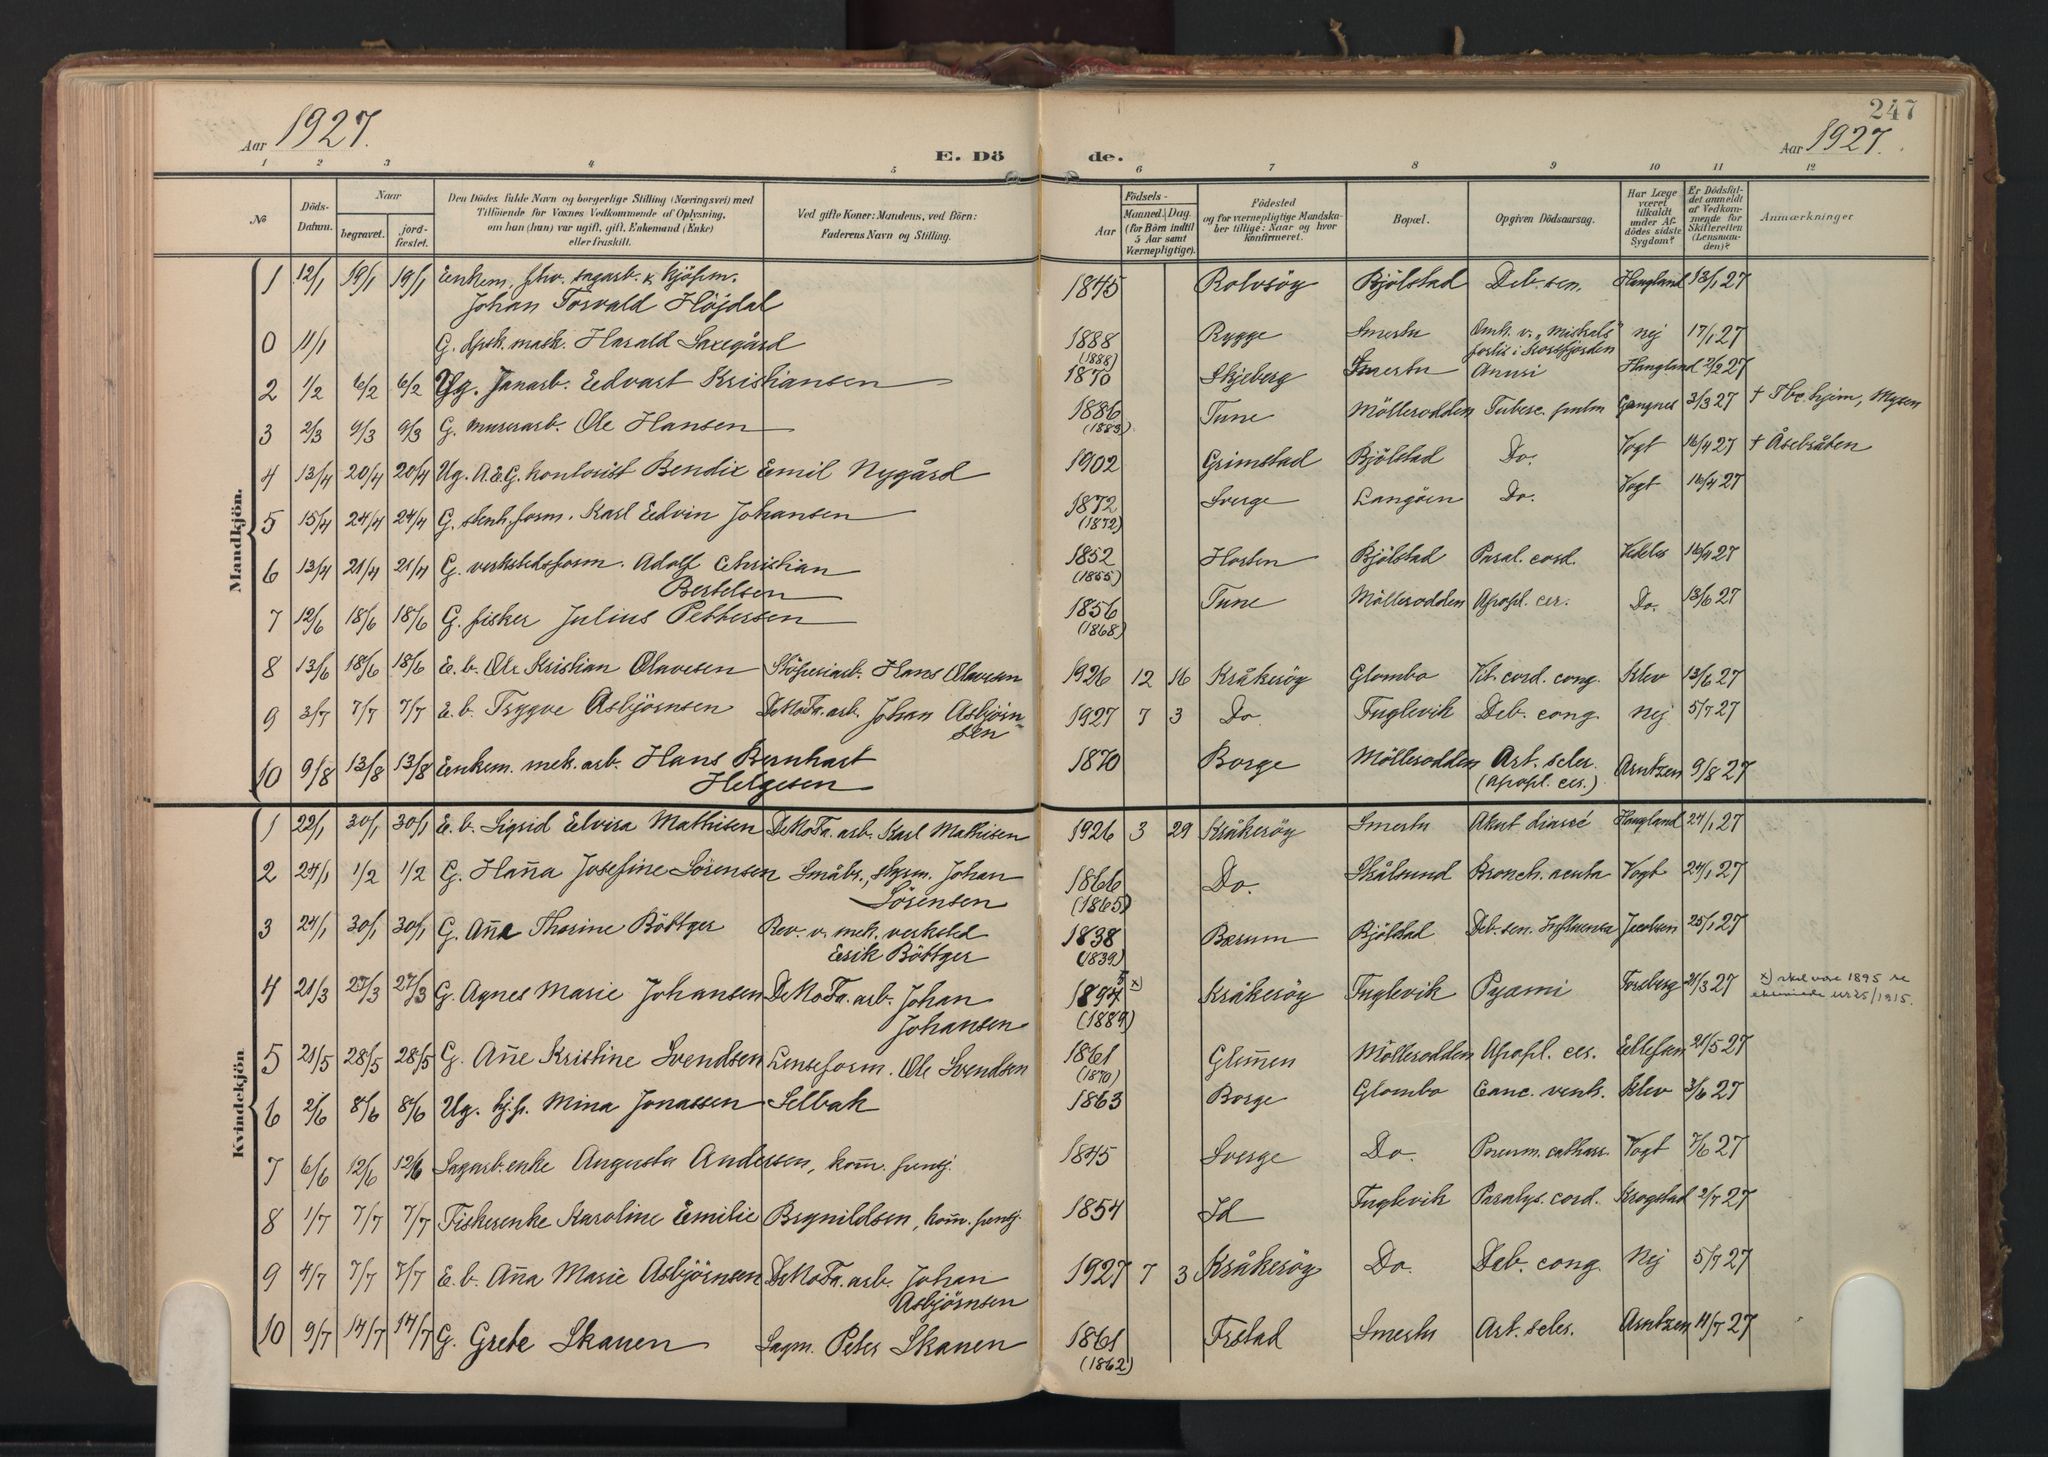 247
Aar 1927.
E. Döde.
Aar 1927.
1 2 3 4 5 6 7 8 9 10 11 12
No
Döds-Datum.
Naar
begravet.
jord-fæstet.
Den Dödes fulde Navn og borgerlige Stilling (Næringsvei) med
Tilföiende for Voxnes Vedkommende af Oplysning,
om han (hun) var ugift, gift, Enkemand (Enke)
eller fraskilt.
Ved gifte Koner: Mandens, ved Börn:
Faderens Navn og Stilling.
Födsels-
Aar
Maaned. Dag.
(for Börn indtil
5 Aar samt
Værnepligtige).
Födested
og for værnepligtige Mandska-
ber tillige: Naar og hvor
konfirmeret.
Bopæl.
Opgiven Dödsaarsag.
Har Læge
været
tilkaldt
under Af-
dödes sidste
Sygdom?
Er Dödsfal-
det anmeldt
af Vedkom-
mende for
Skifteretten
(Lensman-
den)?
Anmærkninger
Mandkjön.
1 12/1 19/1 19/1 Enkem. fhv. sagarb. & kjöpm. 1845 Rolvsöy Bjölstad Deb. sen. Haugland 13/1 27
Johan Torvald Höjdal
0 11/1 G. mask. Harald Saxegård 1888 Rygge Smertu Omk. v. "Miskels" nej 17/1 27
(1888) forlis i Korsfjorden
2 1/2 6/2 6/2 Ug. Janarb. Edvart Kristiansen 1870 Skjeberg Smertu Anuri Haugland 2/2 27
3 2/3 9/3 9/3 G. murerarb. Ole Hansen 1886 Tune Mölleroddden Tuberc. pulm Gangnes 3/3 27 † Tbc. hjem, Mysen
(1883)
4 13/4 20/4 20/4 Ug. A.E.G. kontorist Bendix Emil Nygård 1902 Grimstad Bjölstad Do. Vogt 16/4 27 † Åsebråten
5 15/4 24/4 24/4 G. stenh.form. Karl Edvin Johansen 1872 Sverge Langöen Do. Vogt 16/4 27
(1872)
6 13/4 21/4 21/4 G. verkstedsform. Adolf Christian 1852 Horten Bjölstad Paral. cord. Vedeler 16/4 27
Bertelsen (1855)
7 12/6 18/6 18/6 G. fisker Julius Pettersen 1856 Tune Möllerodden Apopl. cer. Do. 13/6 27
(1868)
8 13/6 18/6 18/6 E. b. Ole Kristian Olavesen Stöperiarb. Hans Olavesen 1926 12 16 Kråkeröy Glombo Vit. cord. cong. Klev 13/6 27
9 3/7 7/7 7/7 E. b. Trygve Asbjörnsen DeNoFa. arb. Johan Asbjörn- 1927 7 3 Do. Fuglevik Deb. cong. Nej 5/7 27
sen
10 9/8 13/8 13/8 Enkem. mek. arb. Hans Bernhart 1870 Borge Möllerodden Art. scler. Arntzen 9/8 27
Helgesen (Apopl. cer.)
Kvindekjön
1 22/1 30/1 30/1 E. b. Sigrid Elvira Mathisen DeNoFa. arb. Karl Mathisen 1926 3 29 Kråkeröy Smertu Akut diarré Haugland 24/1 27
2 24/1 1/2 1/2 G. Han̄a Josefine Sörensen Småbr., styrm. Johan 1866 Do. Skålsund Bronch. acuta Vogt 24/1 27
Sörensen (1865)
3 24/1 30/1 30/1 G. An̄a Thorine Böttger Rev. v. mek. verksted 1838 Bærum Bjölstad Deb. sen. Influensa Jacobsen 25/1 27
Erik Böttger (1839)
4 21/3 27/3 27/3 G. Agnes Marie Johansen DeNoFa. arb. Johan 1894 5 x) Kråkeröy Fuglevik Pyæmi Forsberg 21/3 27 x) skal være 1895 se
Johansen (1889) 25/1915.
5 21/5 28/5 28/5 G. An̄e Kristine Svendsen Lenseform. Ole Svendsen 1861 Glem̄en Möllerodden Apopl. cer. Ellefsen 21/5 27
(1870)
6 2/6 8/6 8/6 Ug. hj.p. Mina Jonassen Selbak 1863 Borge Glombo Canc. ventr. Klev 3/6 27
7 6/6 12/6 12/6 Sagarb.enke Augusta Andersen, kom̄. forsj. 1845 Sverge Do. Pneum. catharr. Vogt 7/6 27
8 1/7 7/7 7/7 Fiskerenke Karoline Emilie Brynildsen, kom̄. forsj. 1854 Id Fuglevik Paralys. cord. Krogstad 2/7 27
9 4/7 7/7 7/7 E. b. An̄a Marie Asbjörnsen DeNoFa. arb. Johan 1927 7 3 Kråkeröy Do. Deb. cong. Nej 5/7 27
Asbjörnsen
10 9/7 14/7 14/7 G. Grete Skauen Sagm. Peter Skauen 1861 Frstad Smertu Art. scler. Arntzen 11/7 27
(1862)